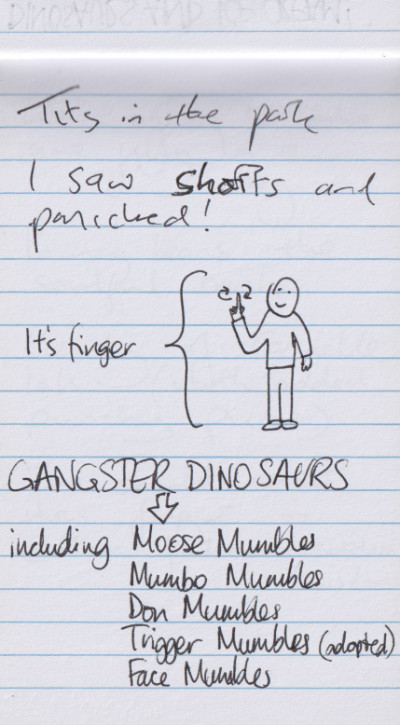 Tits in the park
I saw shoffs and
panicked!
It's finger
GANGSTER DINOSAURS
including Moose Mumbles
Mumbo Mumbles
Don Mumbles
Trigger Mumbles (adopted)
Face Mumbles